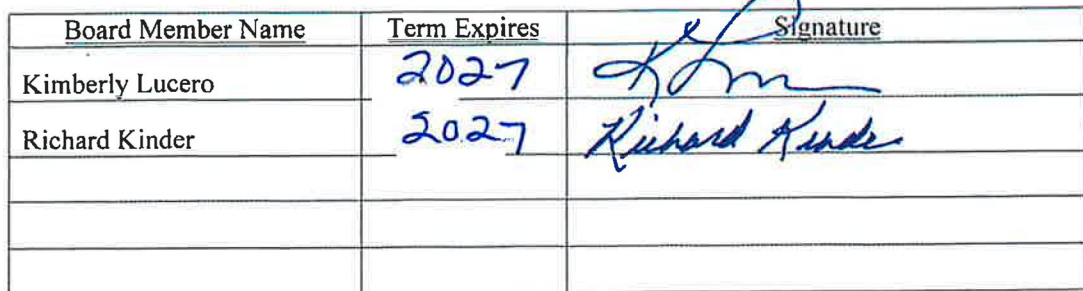 Board Member Name Term Expires Signature
Kimberly Lucero 2027
Richard Kinder 2027 Richard Kinder